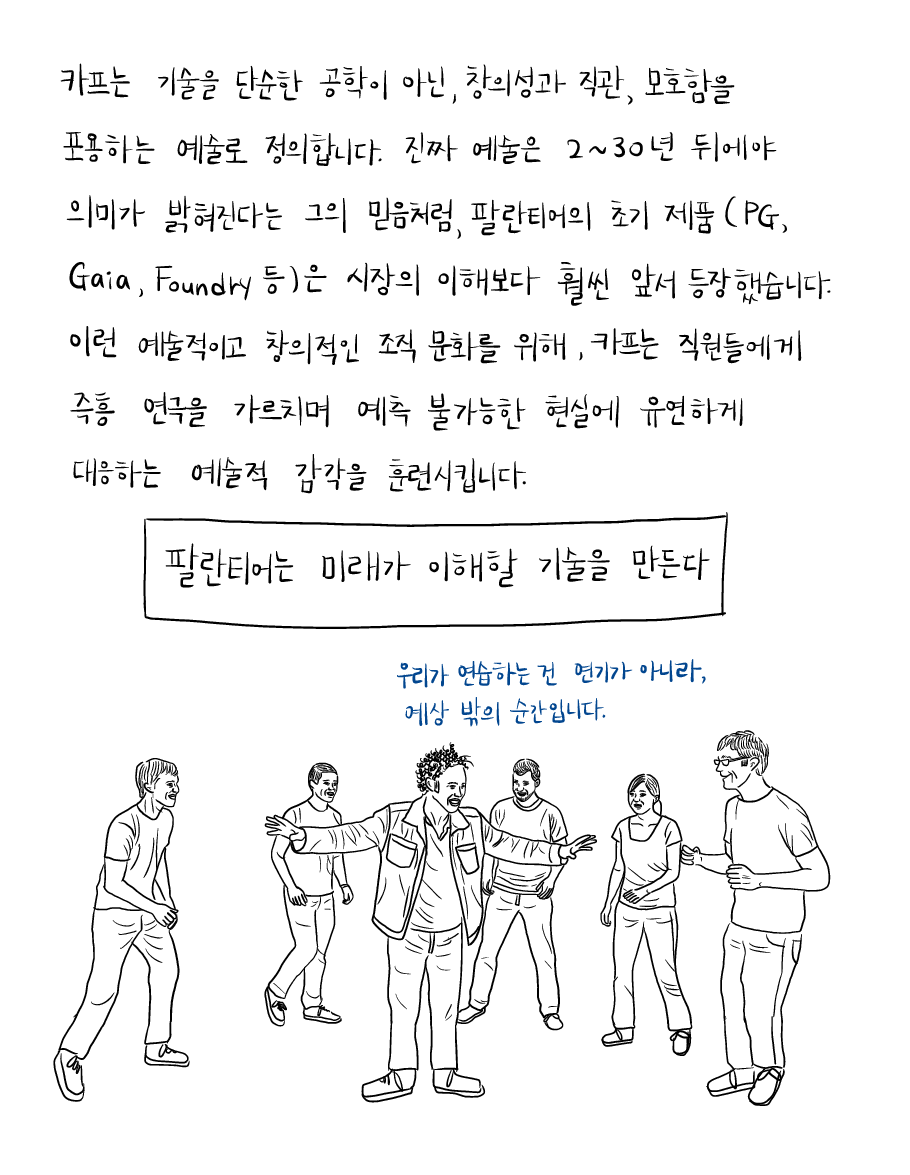 카프는 기술을 단순한 공학이 아닌, 창의성과 직관, 모호함을
포용하는 예술로 정의합니다. 진짜 예술은 2~30년 뒤에야
의미가 밝혀진다는 그의 믿음처럼, 팔란티어의 초기 제품 (PG,
Gaia, Foundry 등)은 시장의 이해보다 훨씬 앞서 등장했습니다.
이런 예술적이고 창의적인 조직 문화를 위해, 카프는 직원들에게
즉흥 연극을 가르치며 예측 불가능한 현실에 유연하게
대응하는 예술적 감각을 훈련시킵니다.
팔란티어는 미래가 이해할 기술을 만든다
우리가 연습하는 건 연기가 아니라,
예상 밖의 순간입니다.